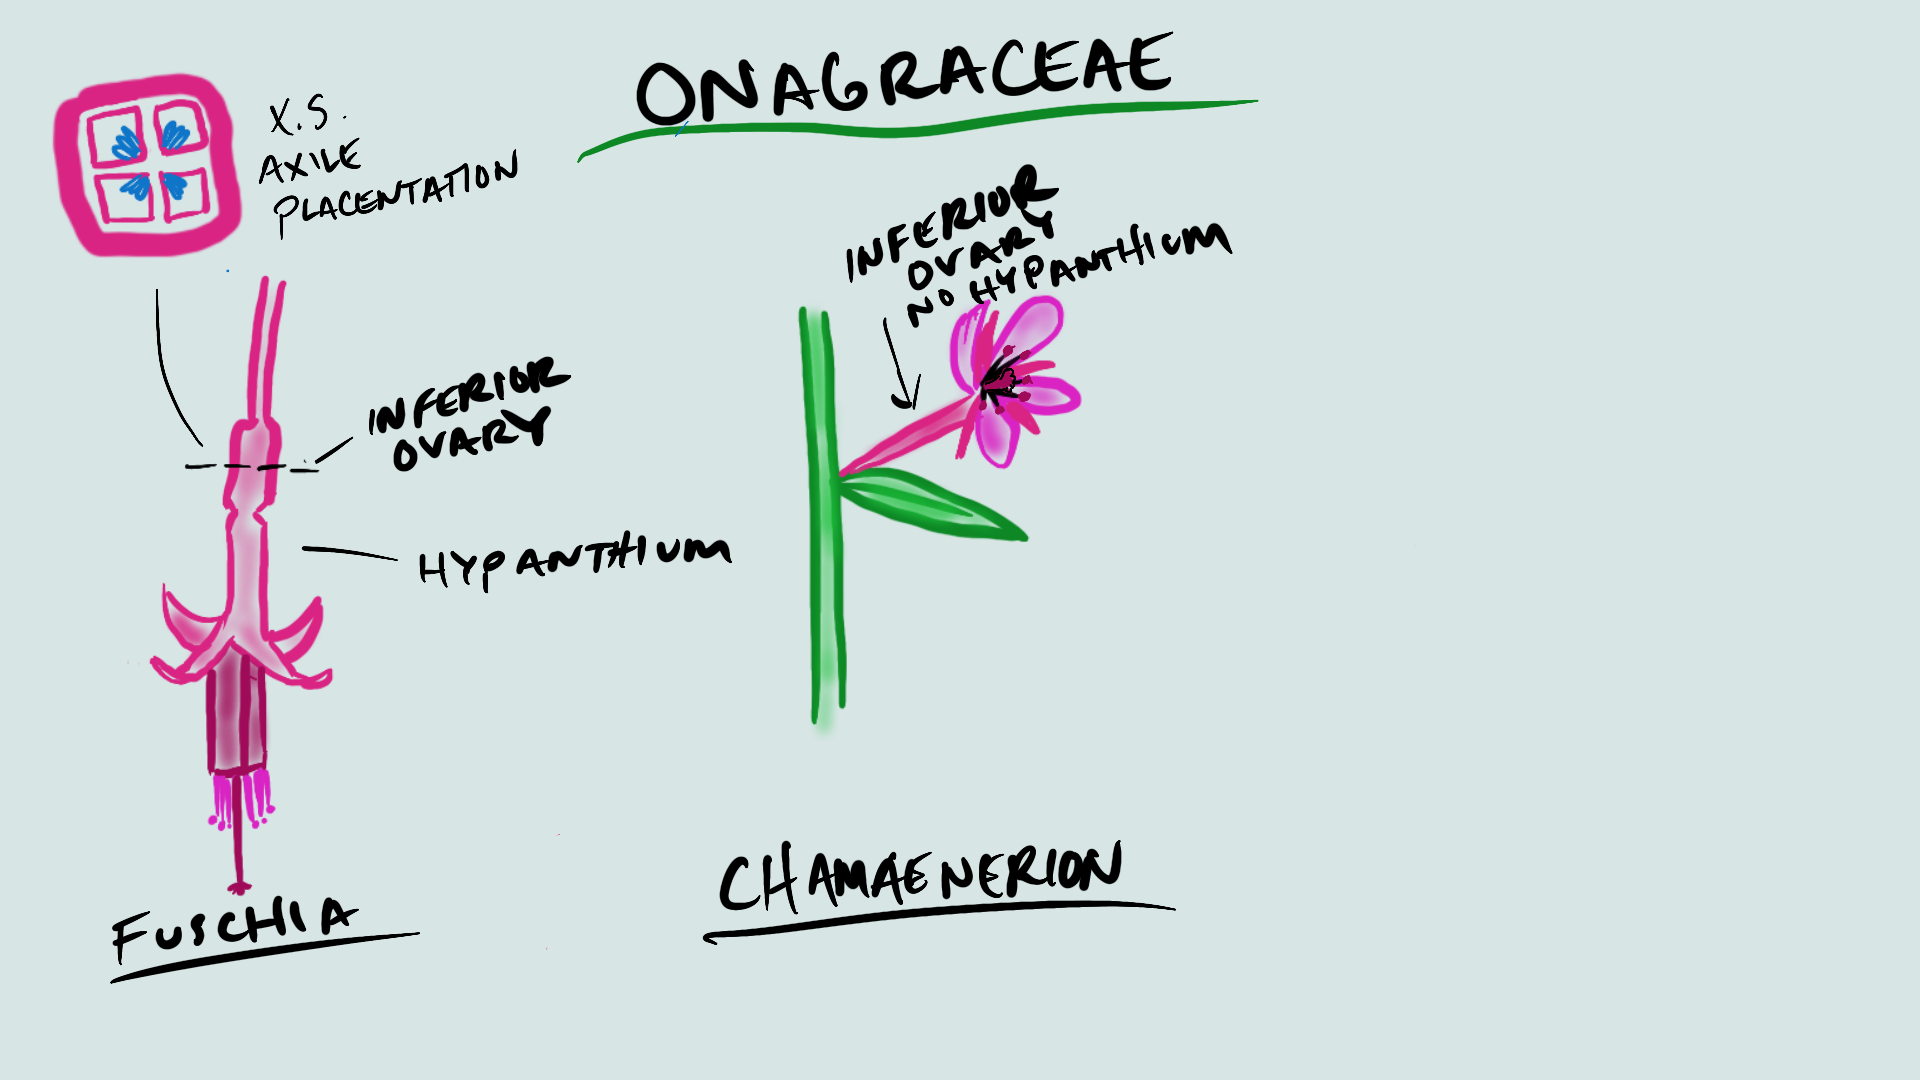 ONAGRACEAE
X.S.
AXILE
PLACENTATION
INFERIOR
OVARY
NO HYPANTHIUM
INFERIOR
OVARY
HYPANTHIUM
FUSCHIA
CHAMAENERION